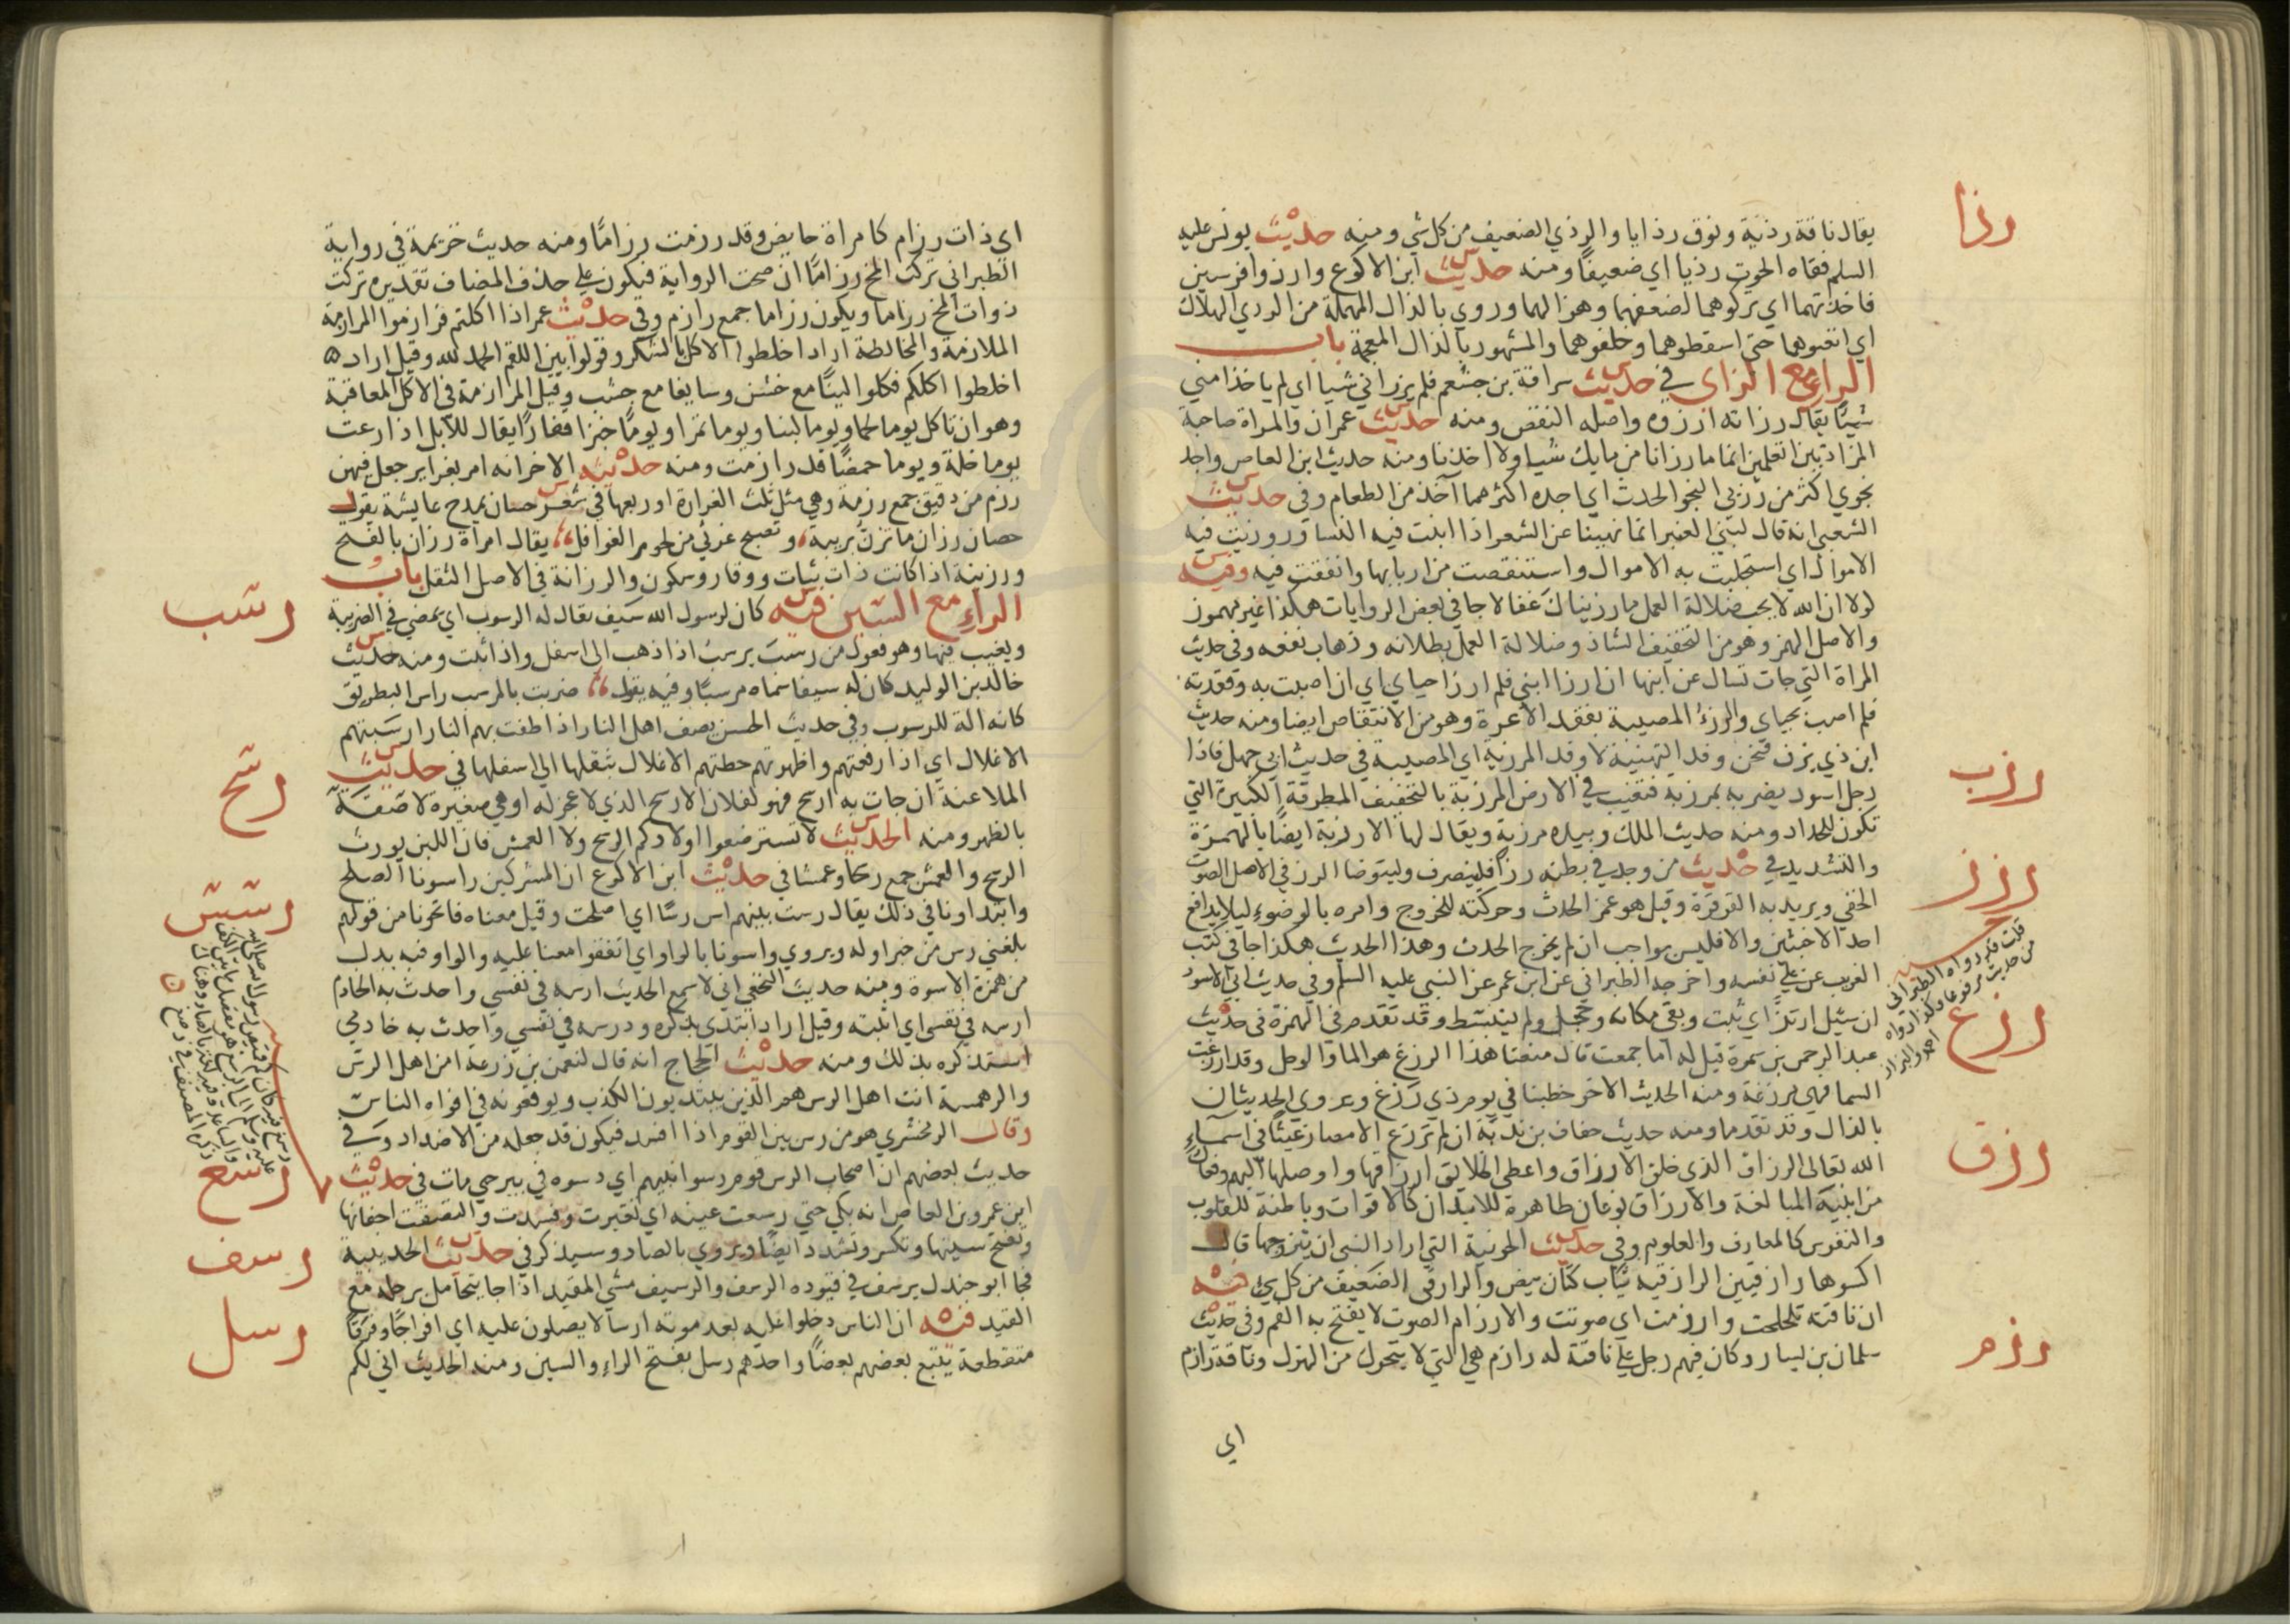 رذا
يقال ناقة رذية ونوق رذايا والرذي الضعيف من كل شي ومنه حديث يونس عليه
السلم فقاه الحوت رذيا اي ضعيفا ومنه حديث ابن الاكوع وارذوا فرسين
فاخذتهما اي تركوهما لضعفهما وهزالهما وروي بالدال المهملة من الردي الهلاك
اي اتعبوهما حتى اسقطوهما وخلفوهما والمشهور بالذال المعجمة باب
الراء مع الزاى في حديث سراقة بن جشعم فلم يرزاني شيا اي لم ياخذا مني
شيئا يقال رزاته ارزوه واصله النقص ومنه حديث عمران والمراة صاحبة
المزادتين اتعلمين انما ما رزانا من مايك شيا ولا اخذنا ومنه حديث ابن العاص واجد
نجوي اكثر من رزيي النجو الحدث اي اجده اكثر مما آخذ من الطعام وفي حديث
الشعبي انه قال لبني العنبر انما نهينا عن الشعر اذا ابنت فيه النسا وروزيت فيه
الاموال اي استجلبت به الاموال واستنقصت من اربابها وانفقت فيه وفيه
لولا ان الله لا يحب ضلالة العمل ما رزيناك عقالا جا في بعض الروايات هكذا غير مهموز
والاصل الهمز وهو من التخفيف الشاذ وضلالة العمل بطلانه وذهاب نفعه وفي حديث
المراة التي جات تسال عن ابنها ان ارزا ابني فلم ارزا حياي اي ان اصبت به وفقدته
فلم اصب بحياي والرزء المصيبة بفقد الاعزة وهو من الانتقاص ايضا ومنه حديث
ابن ذي يزن فنحن وفد التهنية لا وفد المرزية اي المصيبة في حديث ابي جهل فاذا
رزب
رجل اسود يضربه بمرزبة فتغيب في الارض المرزبة بالتخفيف المطرقة الكبيرة التي
تكون للحداد ومنه حديث الملك وبيده مرزبة ويقال لها الارزبة ايضا بالهمزة
رزز
والتشديد في حديث من وجد في بطنه رزا فلينصرف وليتوضا الرز في الاصل الصوت
الخفي ويريد به القرقرة وقيل هو غمز الحدث وحركته للخروج وامره بالوضوء ليلا يدافع
احد الاخبثين والا فليس بواجب ان لم يخرج الحدث وهذا الحديث هكذا جا في كتب
الغريب عن علي نفسه واخرجه الطبراني عن ابن عمر عن النبي عليه السلم وفي حديث ابي الاسود
قلت قد رواه الطبراني
من حديث مرفوعا وكذا رواه
احمد والبزار
ان سئل ارتز اي ثبت وبقي مكانه وخجل ولم ينبسط وقد تقدم في الهمزة في حديث
رزغ
عبد الرحمن بن سمرة قيل له اما جمعت قال منعنا هذا الرزغ هو الما والوحل وقد ارزغت
السما فهي مرزغة ومنه الحديث الاخر خطبنا في يوم ذي رزغ وروي الحديثان
بالذال وقد تقدما ومنه حديث خفاف بن ندبة ان لم ترزغ الامصار غيثا في اسماء
رزق
الله تعالى الرزاق الذي خلق الارزاق واعطى الخلايق ارزاقها واوصلها اليهم وفعال
من ابنية المبالغة والارزاق نوعان ظاهرة للابدان كالاقوات وباطنة للقلوب
والنفوس كالمعارف والعلوم وفي حديث الجونية التي اراد النبي ان يتزوجها قال
اكسوها رازقيين الرازقية ثياب كتان بيض والرازقي الضعيف من كل شي فيه
رزم
ان ناقته تلحلحت وارزمت اي صوتت والارزام الصوت لا يفتح به الفم وفي حديث
سلمان بن يسار وكان فيهم رجل علي ناقة له رازم هي التي لا يتحول من الهزل وناقة رازم
اي
اي ذات رزام كامراة حايض وقد رزمت رزاما ومنه حديث خزيمة في رواية
الطبراني تركت المخ رزاما ان صحت الرواية فيكون علي حذف المضاف تقديره تركت
ذوات المخ رزاما ويكون رزاما جمع رازم وفي حديث عمر اذا اكلتم فرازموا المرازمة
الملازمة والمخالطة اراد اخلطوا الاكل بالشكر وقولوا بين اللقم الحمد لله وقيل اراد
اخلطوا اكلكم فكلوا لينا مع خشن وسايغا مع جشب وقيل المرازمة في الاكل المعاقبة
وهو ان تاكل يوما لحما ويوما لبنا ويوما تمرا ويوما خبزا قفارا يقال للابل اذا رعت
يوما خلة ويوما حمضا قد رازمت ومنه حديثه الاخر انه امر بغراير جعل فيهن
رزم من دقيق جمع رزمة وهي مثل ثلث الغرارة او ربعها في شعر حسان يمدح عايشة يقول
حصان رزان ما تزن بريبة، وتصبح غرثي من لحوم الغوافل، يقال امراة رزان بالفتح
ورزينة اذا كانت ذات ثبات ووقار وسكون والرزانة في الاصل الثقل باب
رسب
الراء مع السين فيه كان لرسول الله سيف يقال له الرسوب اي يمضي في الضريبة
ويغيب فيها وهو فعول من رسب يرسب اذا ذهب الى اسفل واذا ثبت ومنه حديث
خالد بن الوليد كان له سيفا سماه مرسبا وفيه يقول، ضربت بالمرسب راس البطريق
كانه الة للرسوب وفي حديث الحسن يصف اهل النار اذا طفت بهم النار ارسبتهم
الاغلال اي اذا رفعتهم واظهرتهم حطتهم الاغلال بثقلها الى اسفلها في حديث
رسح
الملاعنة ان جات به ارسح فهو لفلان الارسح الذي لا عجز له او هي صغيرة لاصقة
بالظهر ومنه الحديث لا تسترضعوا اولادكم الرسح ولا العمش فان اللبن يورث
الرسح والعمش جمع رسحا وعمشا في حديث ابن الاكوع ان المشركين راسونا الصلح
رسس
وابتداونا في ذلك يقال رست بينهم اس رسا اي اصلحت وقيل معناه فاتحونا من قولهم
بلغني رس من خبر اوله ويروي واسونا بالواو اي اتفقوا معنا عليه والواو فيه بدل
من همزة الاسوة ومنه حديث النخعي اني لاسمع الحديث ارسه في نفسي واحدث به الخادم
ارسه في نفسي اي اثبته وقيل اراد ابتدي بذكره ودرسه في نفسي واحدث به خادمي
استذكره بذلك ومنه حديث الحجاج انه قال لنعمن بن زرعة امن اهل الرس
والرهمسة انت اهل الرس هم الذين يبتدبون الكذب ويوقعونه في افواه الناس
وقال الزمخشري هو من رس بين القوم اذا افسد فيكون قد جعله من الاضداد وفي
حديث بعضهم ان اصحاب الرس قوم رسوا نبيهم اي دسوه في بير حتي مات في حديث
رسغ فيه كان كم قميص رسول الله صلى الله
عليه وسلم الى الرسغ هو مفصل ما بين الكف
والساعد وقيل لغة بالصاد وهناك
ذكره المصنف في رصغ
رسع
ابن عمرو بن العاص انه بكي حتي رسعت عينه اي تغيرت وفسدت والتصقت اجفانها
وتفتح سينها وتكسر وتشدد ايضا ويروي بالصاد وسيذكر في حديث الحديبية
رسف
فجا ابو جندل يرسف في قيوده الرسف والرسيف مشي المقيد اذا جا يتحامل برجله مع
القيد فيه ان الناس دخلوا عليه بعد موته ارسالا يصلون عليه اي افواجا وفرقا
رسل
متقطعة يتبع بعضهم بعضا واحدهم رسل بفتح الراء والسين ومنه الحديث اني لكم